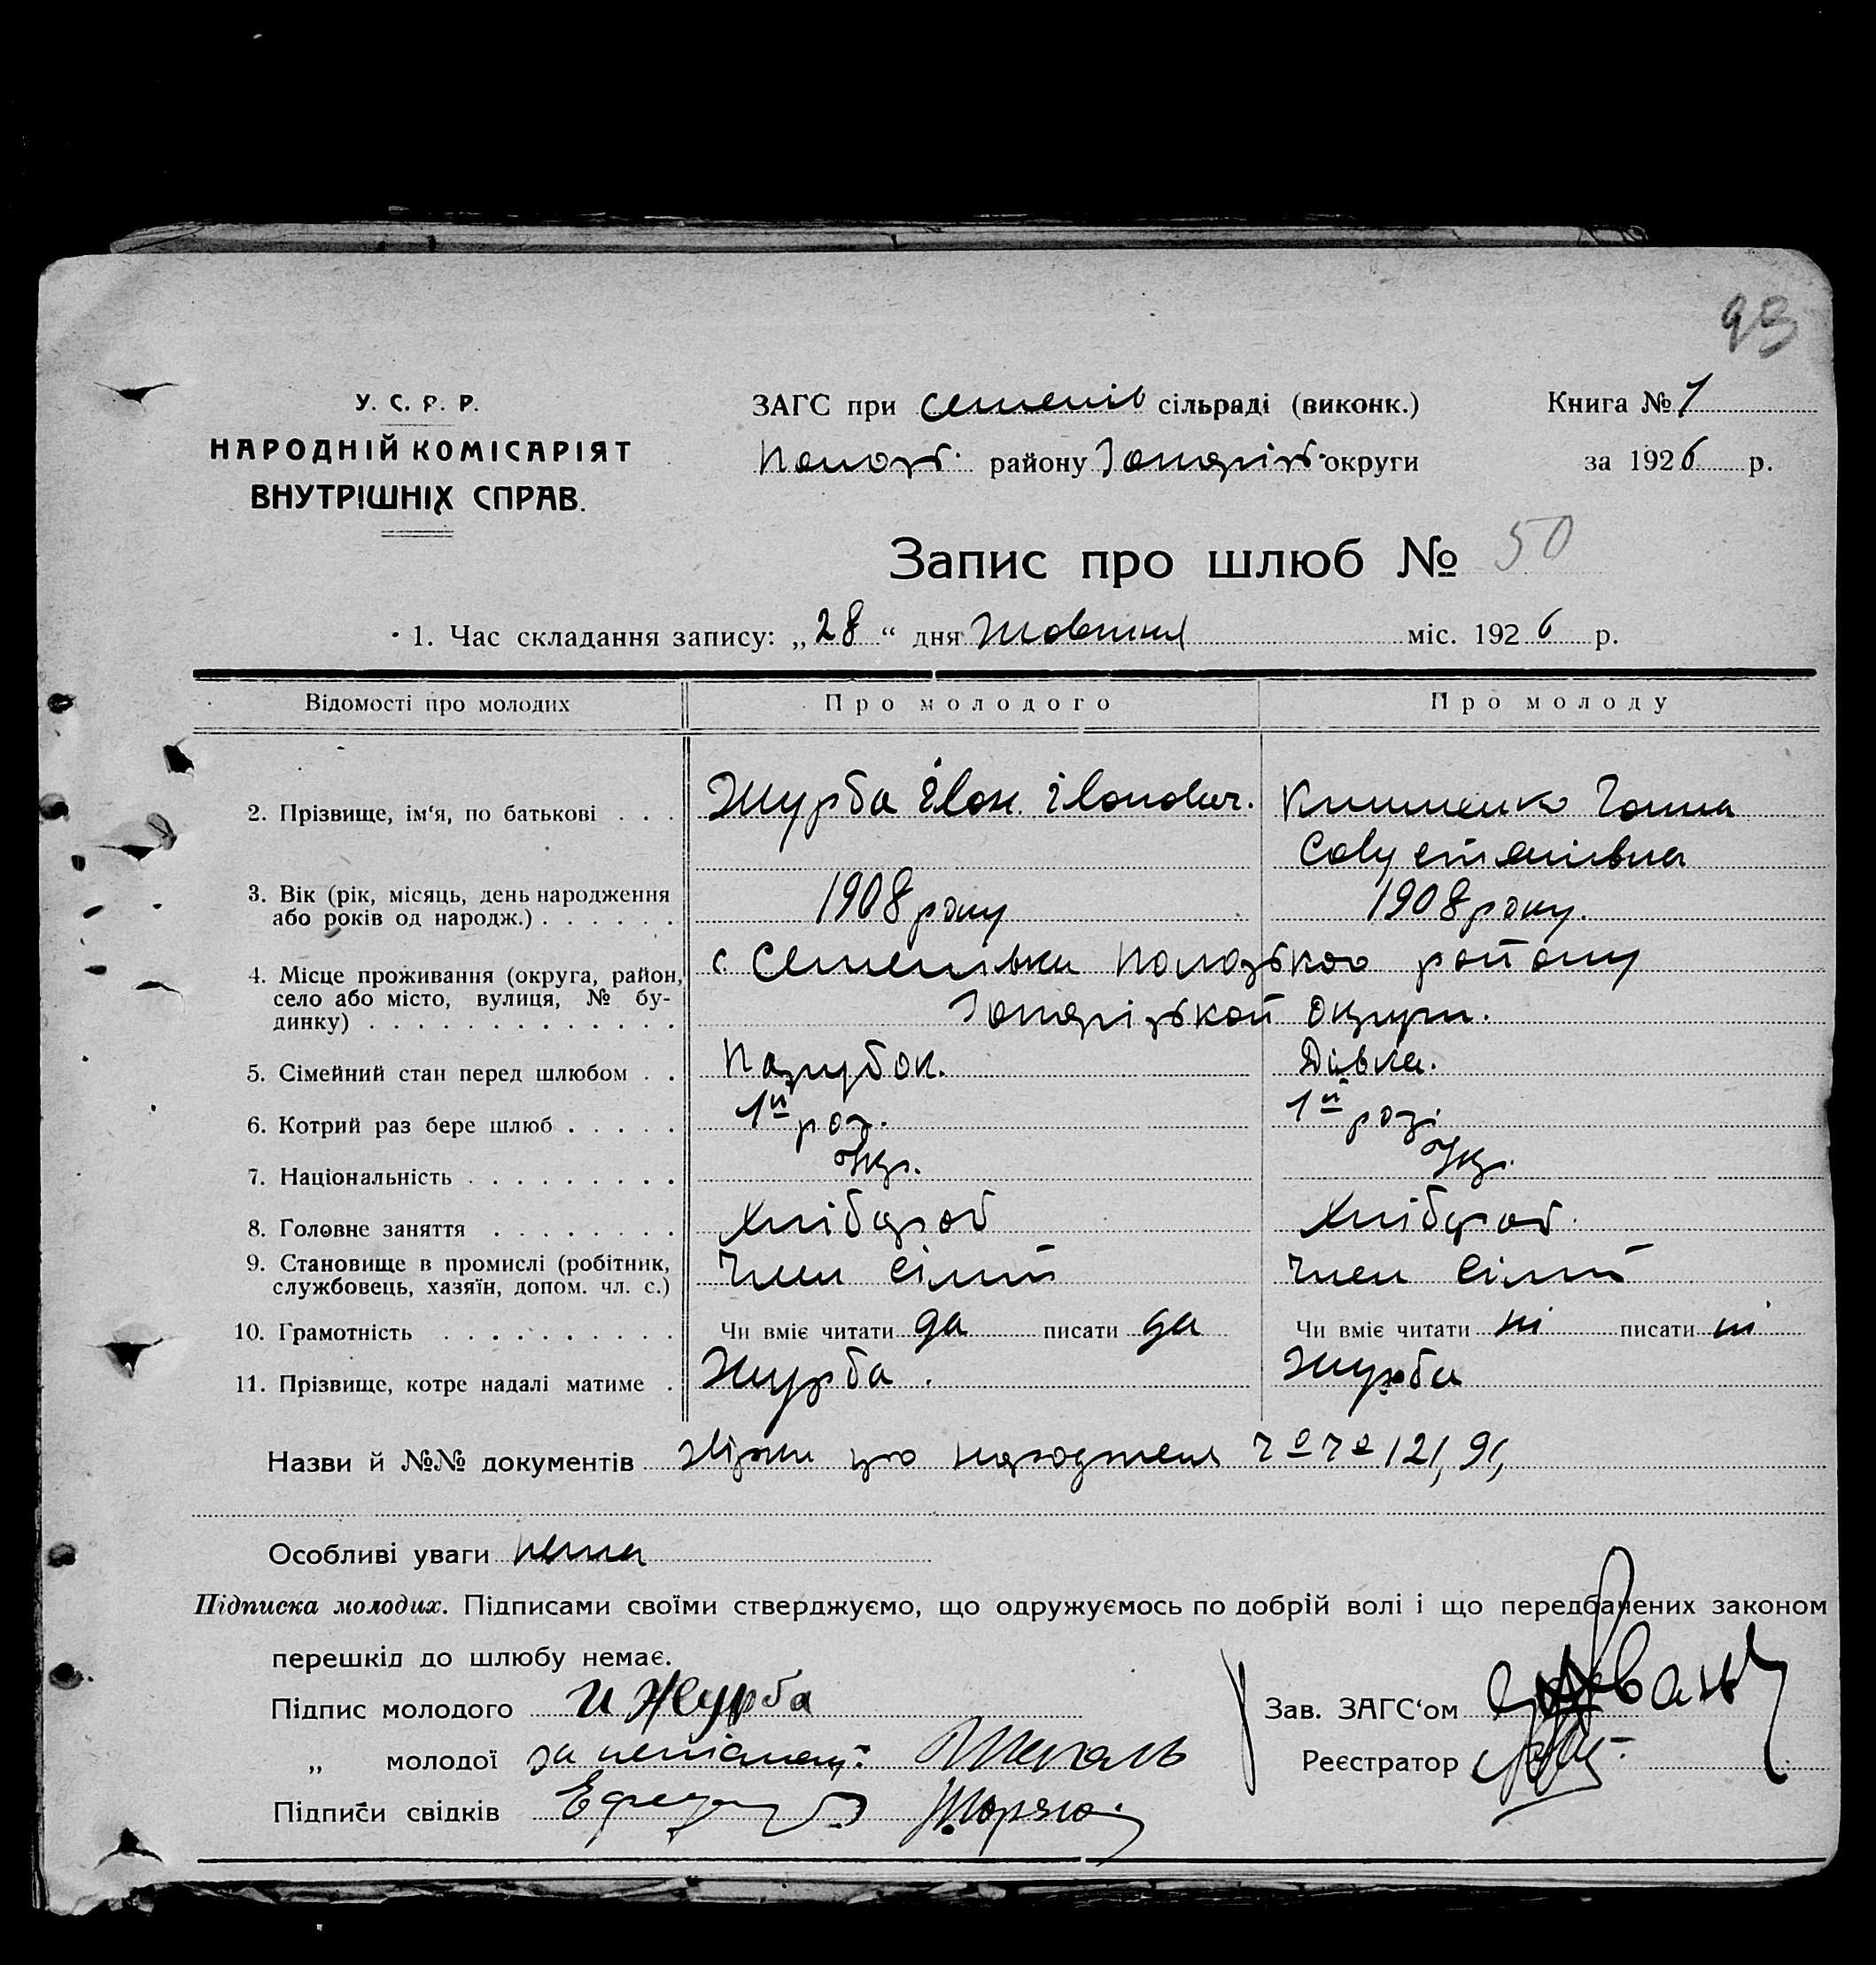 93
У. С. Р. Р.
НАРОДНІЙ КОМІСАРІЯТ
ВНУТРІШНІХ СПРАВ.
ЗАГС при семенів сільраді (виконк.)
Полозс. району Запоріз. округи
Книга № 1
за 1926 р.
Запис про шлюб № 50
1. Час складання запису: „28“ дня Жовтня міс. 1926 р.
Відомості про молодих Про молодого Про молоду
2. Прізвище, ім‘я, по батькові . . . Журба Клименко Ганна
3. Вік (рік, місяць, день народження
або років од народж.) . . . . . . 1908 року 1908 року.
4. Місце проживання (округа, район,
село або місто, вулиця, № бу-
динку) . . . . . . . . . . . . .
с. Семенівки Полозького району
Запорізької Округи.
5. Сімейний стан перед шлюбом . . Парубок. Дівка.
6. Котрий раз бере шлюб . . . . . 1й раз. 1й раз.
7. Національність . . . . . . . . . Укр. Укр.
8. Головне заняття . . . . . . . . Хлібороб Хлібороб.
9. Становище в промислі (робітник,
службовець, хазяїн, допом. чл. с.) Член сімї Член сімї
10. Грамотність . . . . . . . . . . Чи вміє читати да писати да Чи вміє читати ні писати ні
11. Прізвище, котре надалі матиме . Журба. Журба
Назви й №№ документів про народження 121, 91,
Особливі уваги нема
Підписка молодих. Підписами своїми стверджуємо, що одружуємось по добрій волі і що передбачених законом
перешкід до шлюбу немає.
Підпис молодого И Журба
„ молодої за неписьмен.
Підписи свідків
Зав. ЗАГС‘ом
Реєстратор